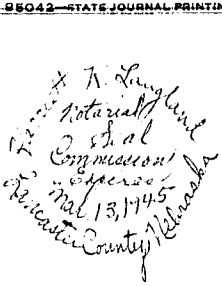 95042—STATE JOURNAL PRINTIN
Harriett N. Langland
Notarial
Seal
Commission
Expires
Mar. 13, 1945
Lancaster County, Nebraska